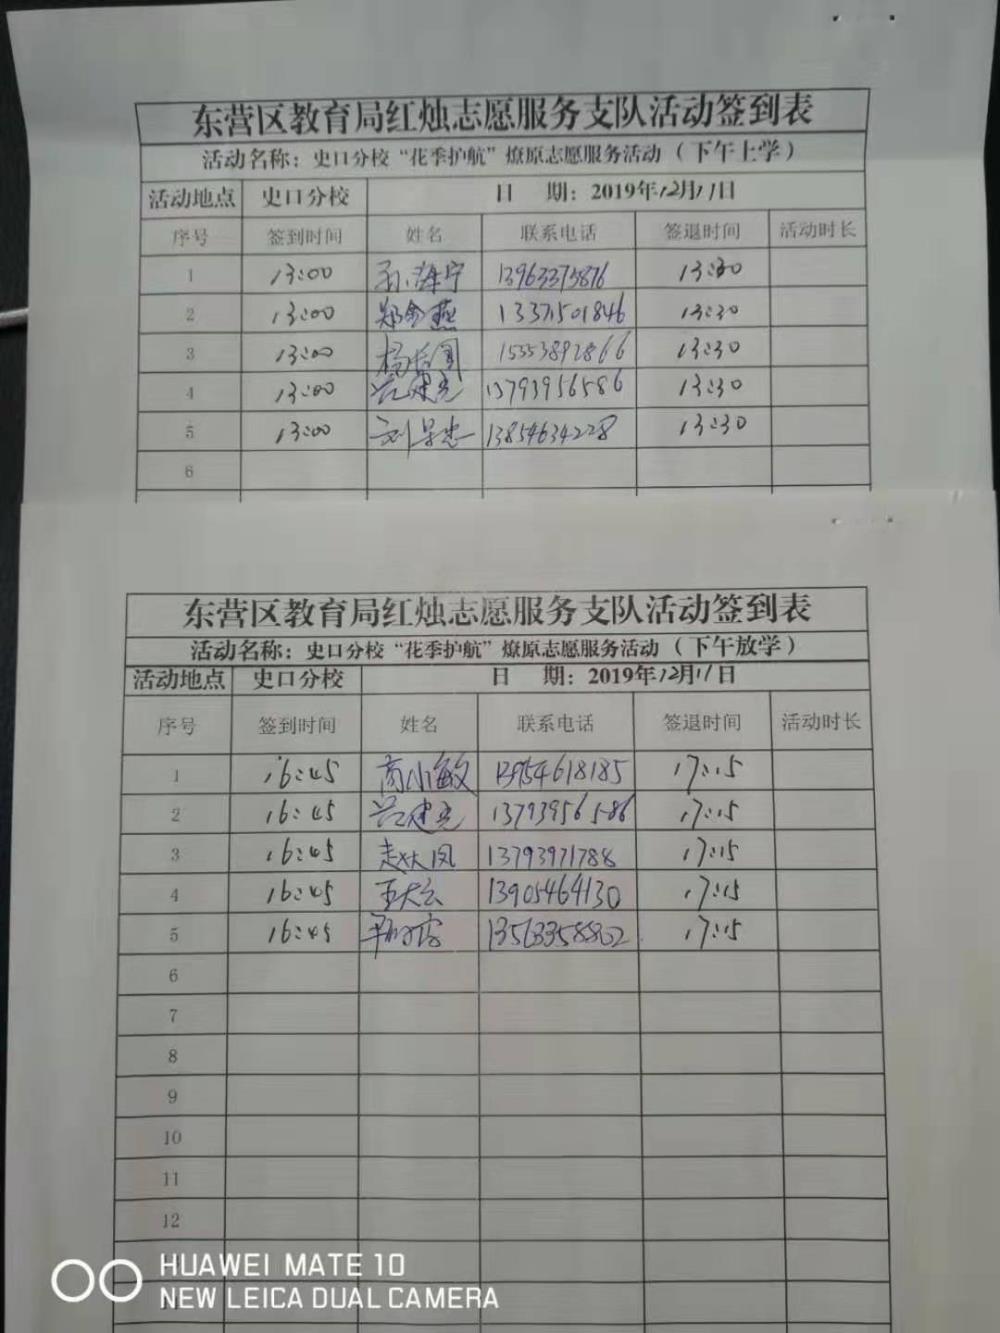 东营区教育局红烛志愿服务支队活动签到表
活动名称：史口分校“花季护航”燎原志愿服务活动（下午上学）
活动地点 史口分校 日 期：2019年12月11日
序号 签到时间 姓名 联系电话 签退时间 活动时长
1 13:00 孙海宁 13963375876 13:30
2 13:00 郑金燕 13371501846 13:30
3 13:00 15553892866 13:30
4 13:00 13793956586 13:30
5 13:00 13854634228 13:30
6
东营区教育局红烛志愿服务支队活动签到表
活动名称：史口分校“花季护航”燎原志愿服务活动（下午放学）
活动地点 史口分校 日 期：2019年12月11日
序号 签到时间 姓名 联系电话 签退时间 活动时长
1 16:45 商小敏 13954618185 17:15
2 16:45 13793956586 17:15
3 16:45 13793971788 17:15
4 16:45 王大云 13905464130 17:15
5 16:45 13563358802 17:15
6
7
8
9
10
11
12
HUAWEI MATE 10
NEW LEICA DUAL CAMERA